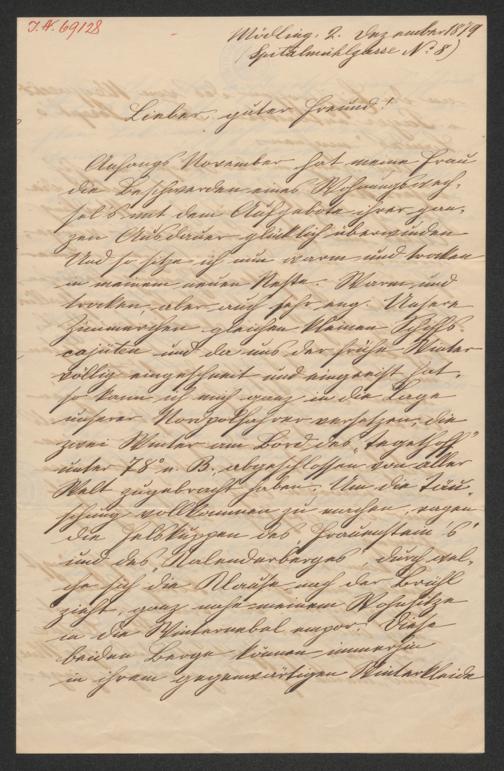 J.N. 69128
Mödling, 2. Dezember 1879
(Spitalmühlgasse No 8)
Lieber, guter Freund!
Anfangs November hat meine Frau
die Beschwerden eines Wohnungswech-
sels mit dem Aufgebote ihrer gan-
zen Ausdauer glücklich überwunden
Und so sitze ich nun warm und trocken
in meinem neuen Neste. Warm und
trocken, aber auch sehr eng. Unsere
Zimmerchen gleichen kleinen Schiffs
cajüten und da uns der frühe Winter
völlig eingeschneit und eingeeist hat,
so kann ich mich ganz in die Lage
unserer Nordpolfahrer versetzen, die
zwei Winter am Bord des "Tegethoff"
unter 78° n. B. abgeschlossen von aller
Welt zugebracht haben. Um die Täu-
schung vollkommen zu machen, ragen
die Felskuppen des "Frauenstein's"
und des "Kalenderberges", durch wel-
che sich die Klause nach der Brühl
zieht, ganz nahe meinem Wohnsitze
in die Winternebel empor. Diese
beiden Berge können immerhin
in ihrem gegenwärtigen Winterkleide